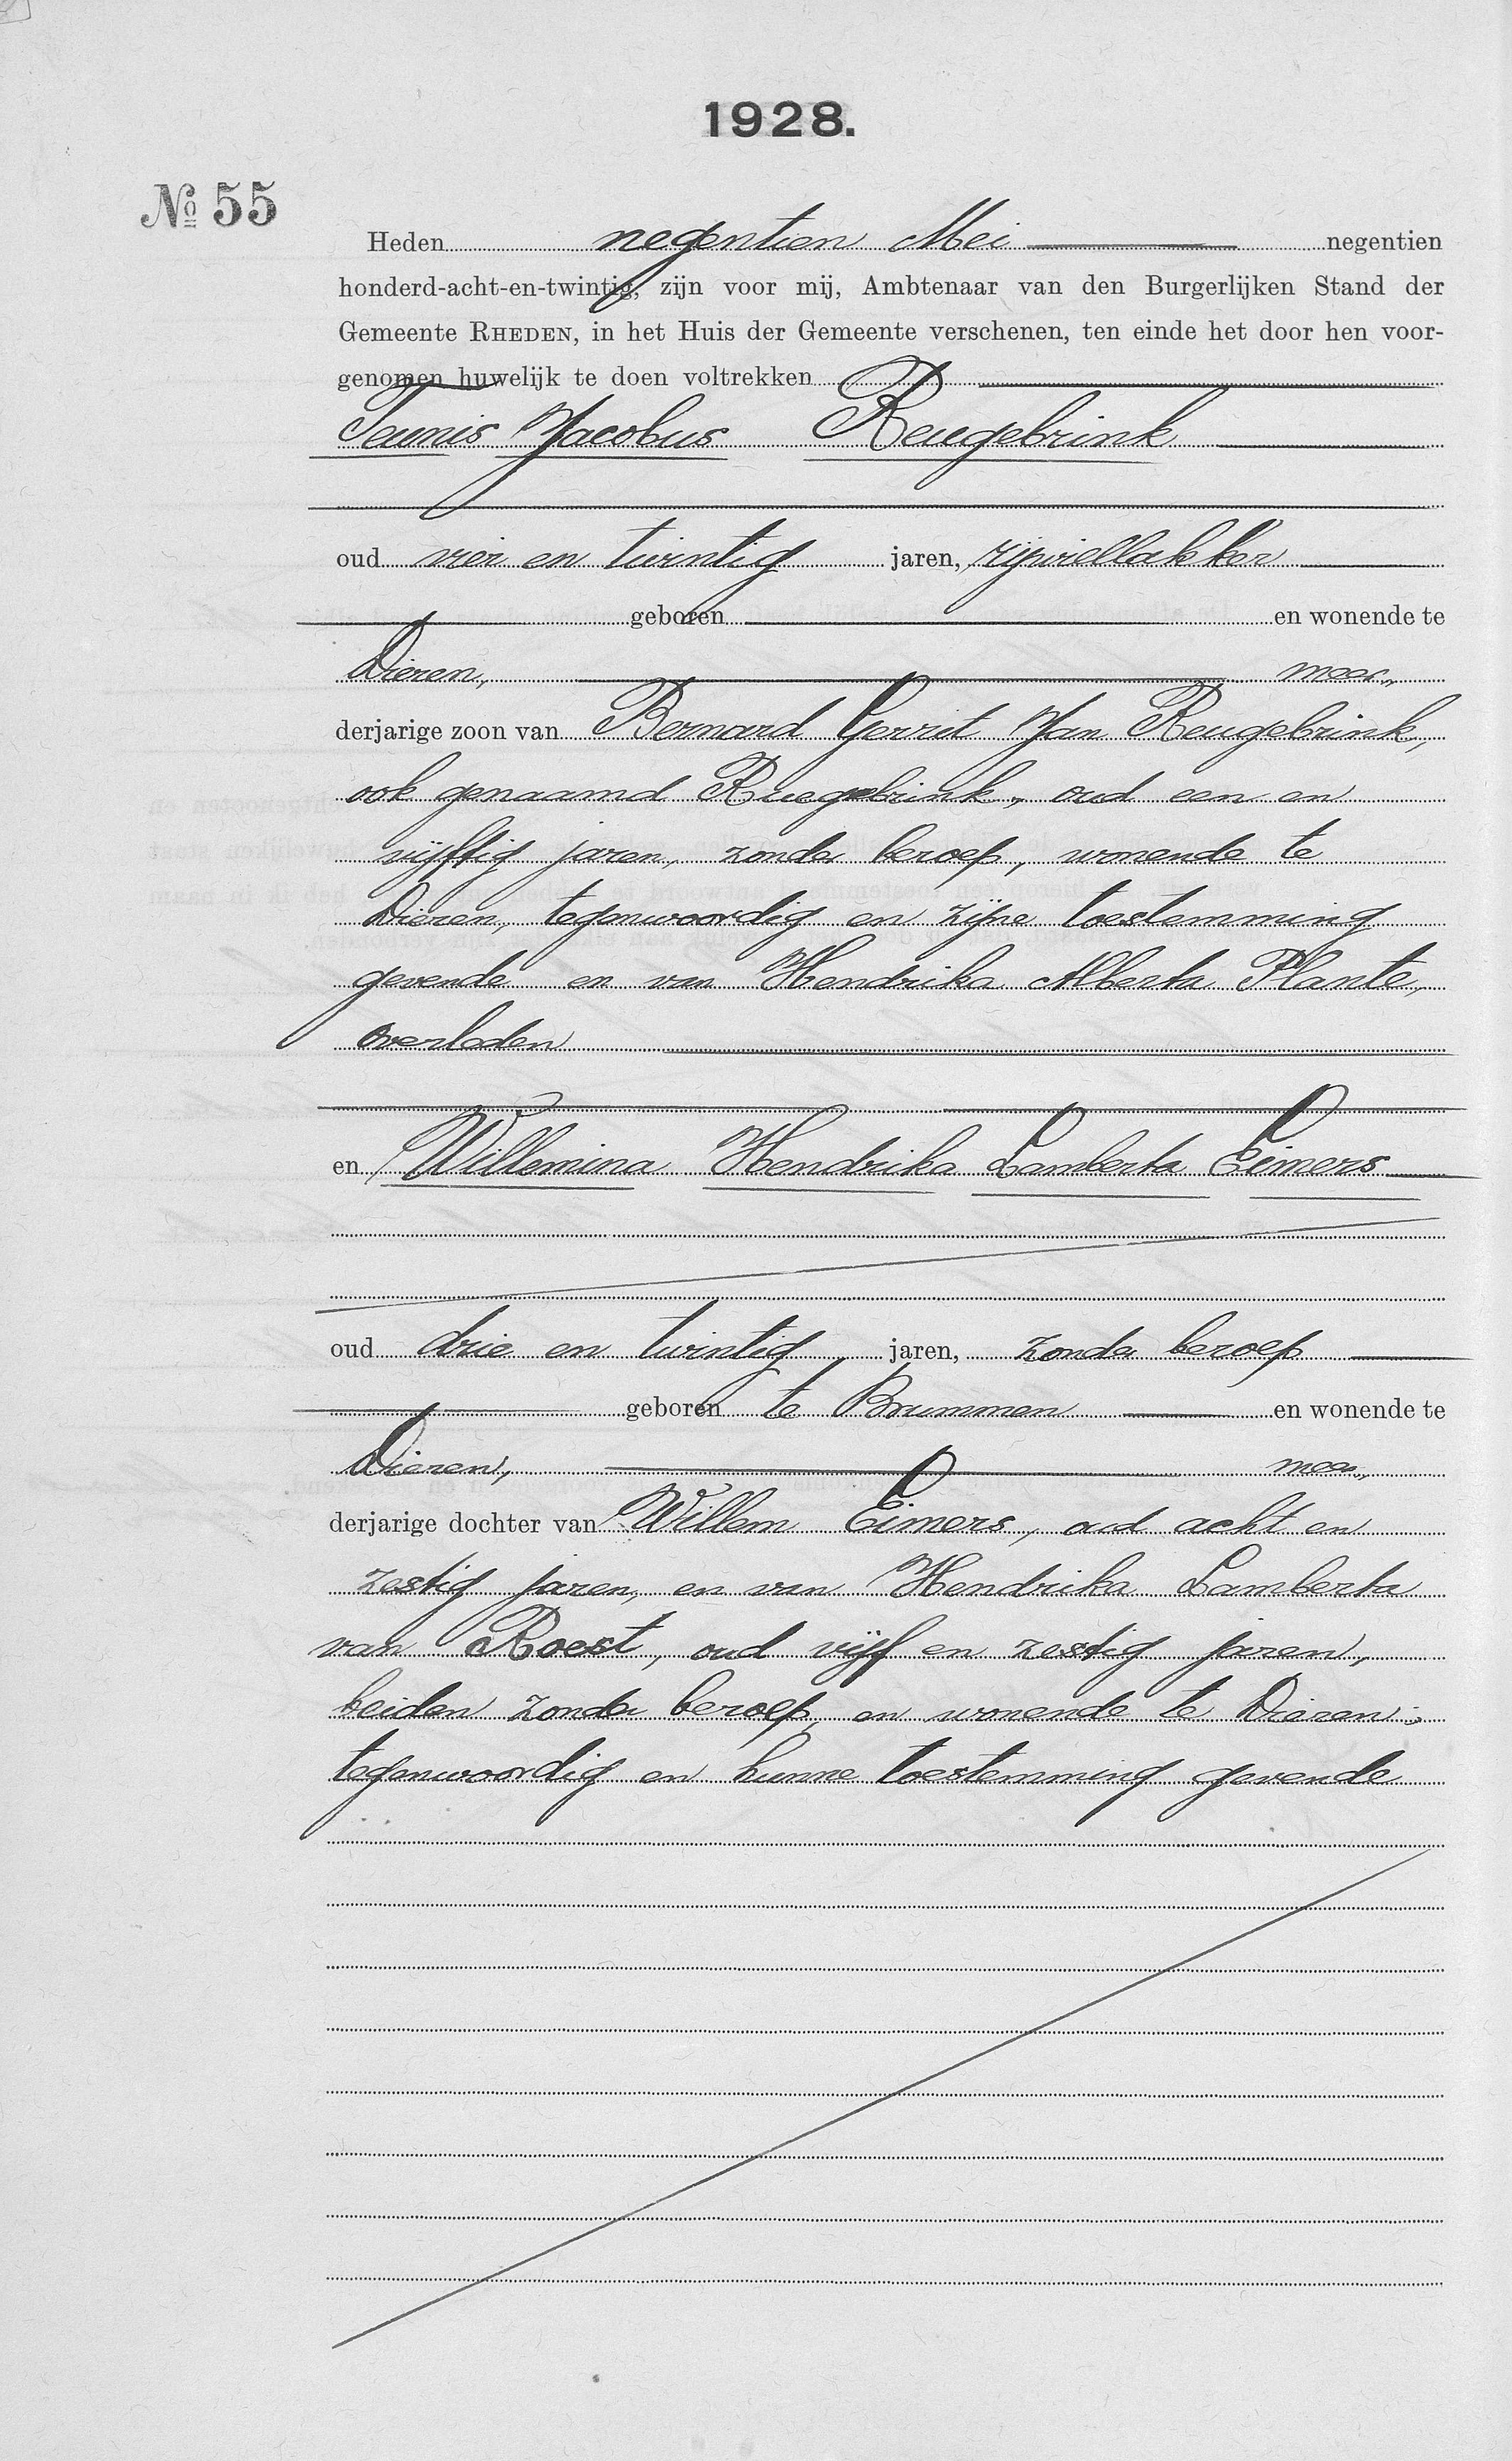 1928.
№ 55
Heden negentien Mei negentien
honderd-acht-en-twintig, zijn voor mij, Ambtenaar van den Burgerlijken Stand der
Gemeente RHEDEN, in het Huis der Gemeente verschenen, ten einde het door hen voor-
genomen huwelijk te doen voltrekken
Teunis Jacobus Reugebrink
oud vier en twintig jaren, rijwiellakker
geboren en wonende te
Dieren, meer„
derjarige zoon van Bernard Gerrit Jan Reugebrink,
ook genaamd Ruegebrink, oud een en
vijftig jaren, zonder beroep, wonende te
Dieren, tegenwoordig en zijne toestemming
gevende en van Hendrika Alberta Plante,
overleden
en Willemina Hendrika Lamberta Eimers
oud drie en twintig jaren, zonder beroep
geboren te Brummen en wonende te
Dieren, meer„
derjarige dochter van Willem Eimers, oud acht en
zestig jaren, en van Hendrika Lamberta
van Roest, oud vijf en zestig jaren,
beiden zonder beroep, en wonende te Dieren,
tegenwoordig en hunne toestemming gevende